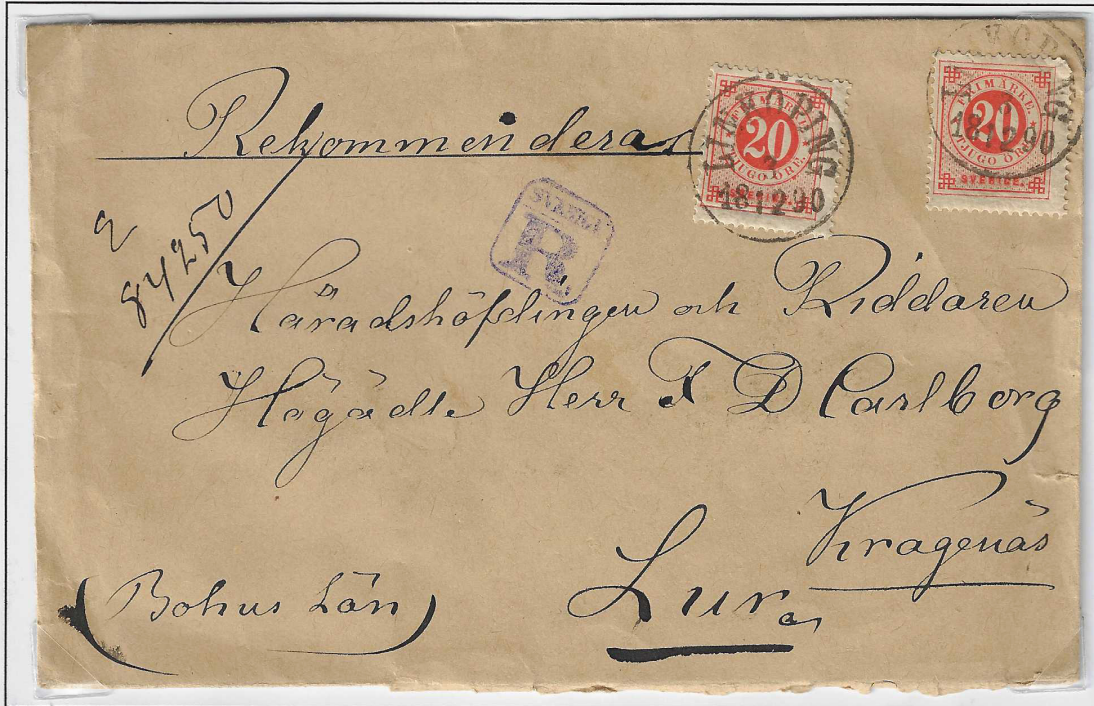 Rekommenderas
FRIMÄRKE
20
TJUGO ÖRE.
SVERIGE.
LIDKÖPING
18 12 90
FRIMÄRKE
20
TJUGO ÖRE
SVERIGE.
18 12 90
R.
2
84250
Häradshöfdingen och Riddaren
Högädle Herr F D Carlborg
Kragenäs
Lur
(Bohus Län)